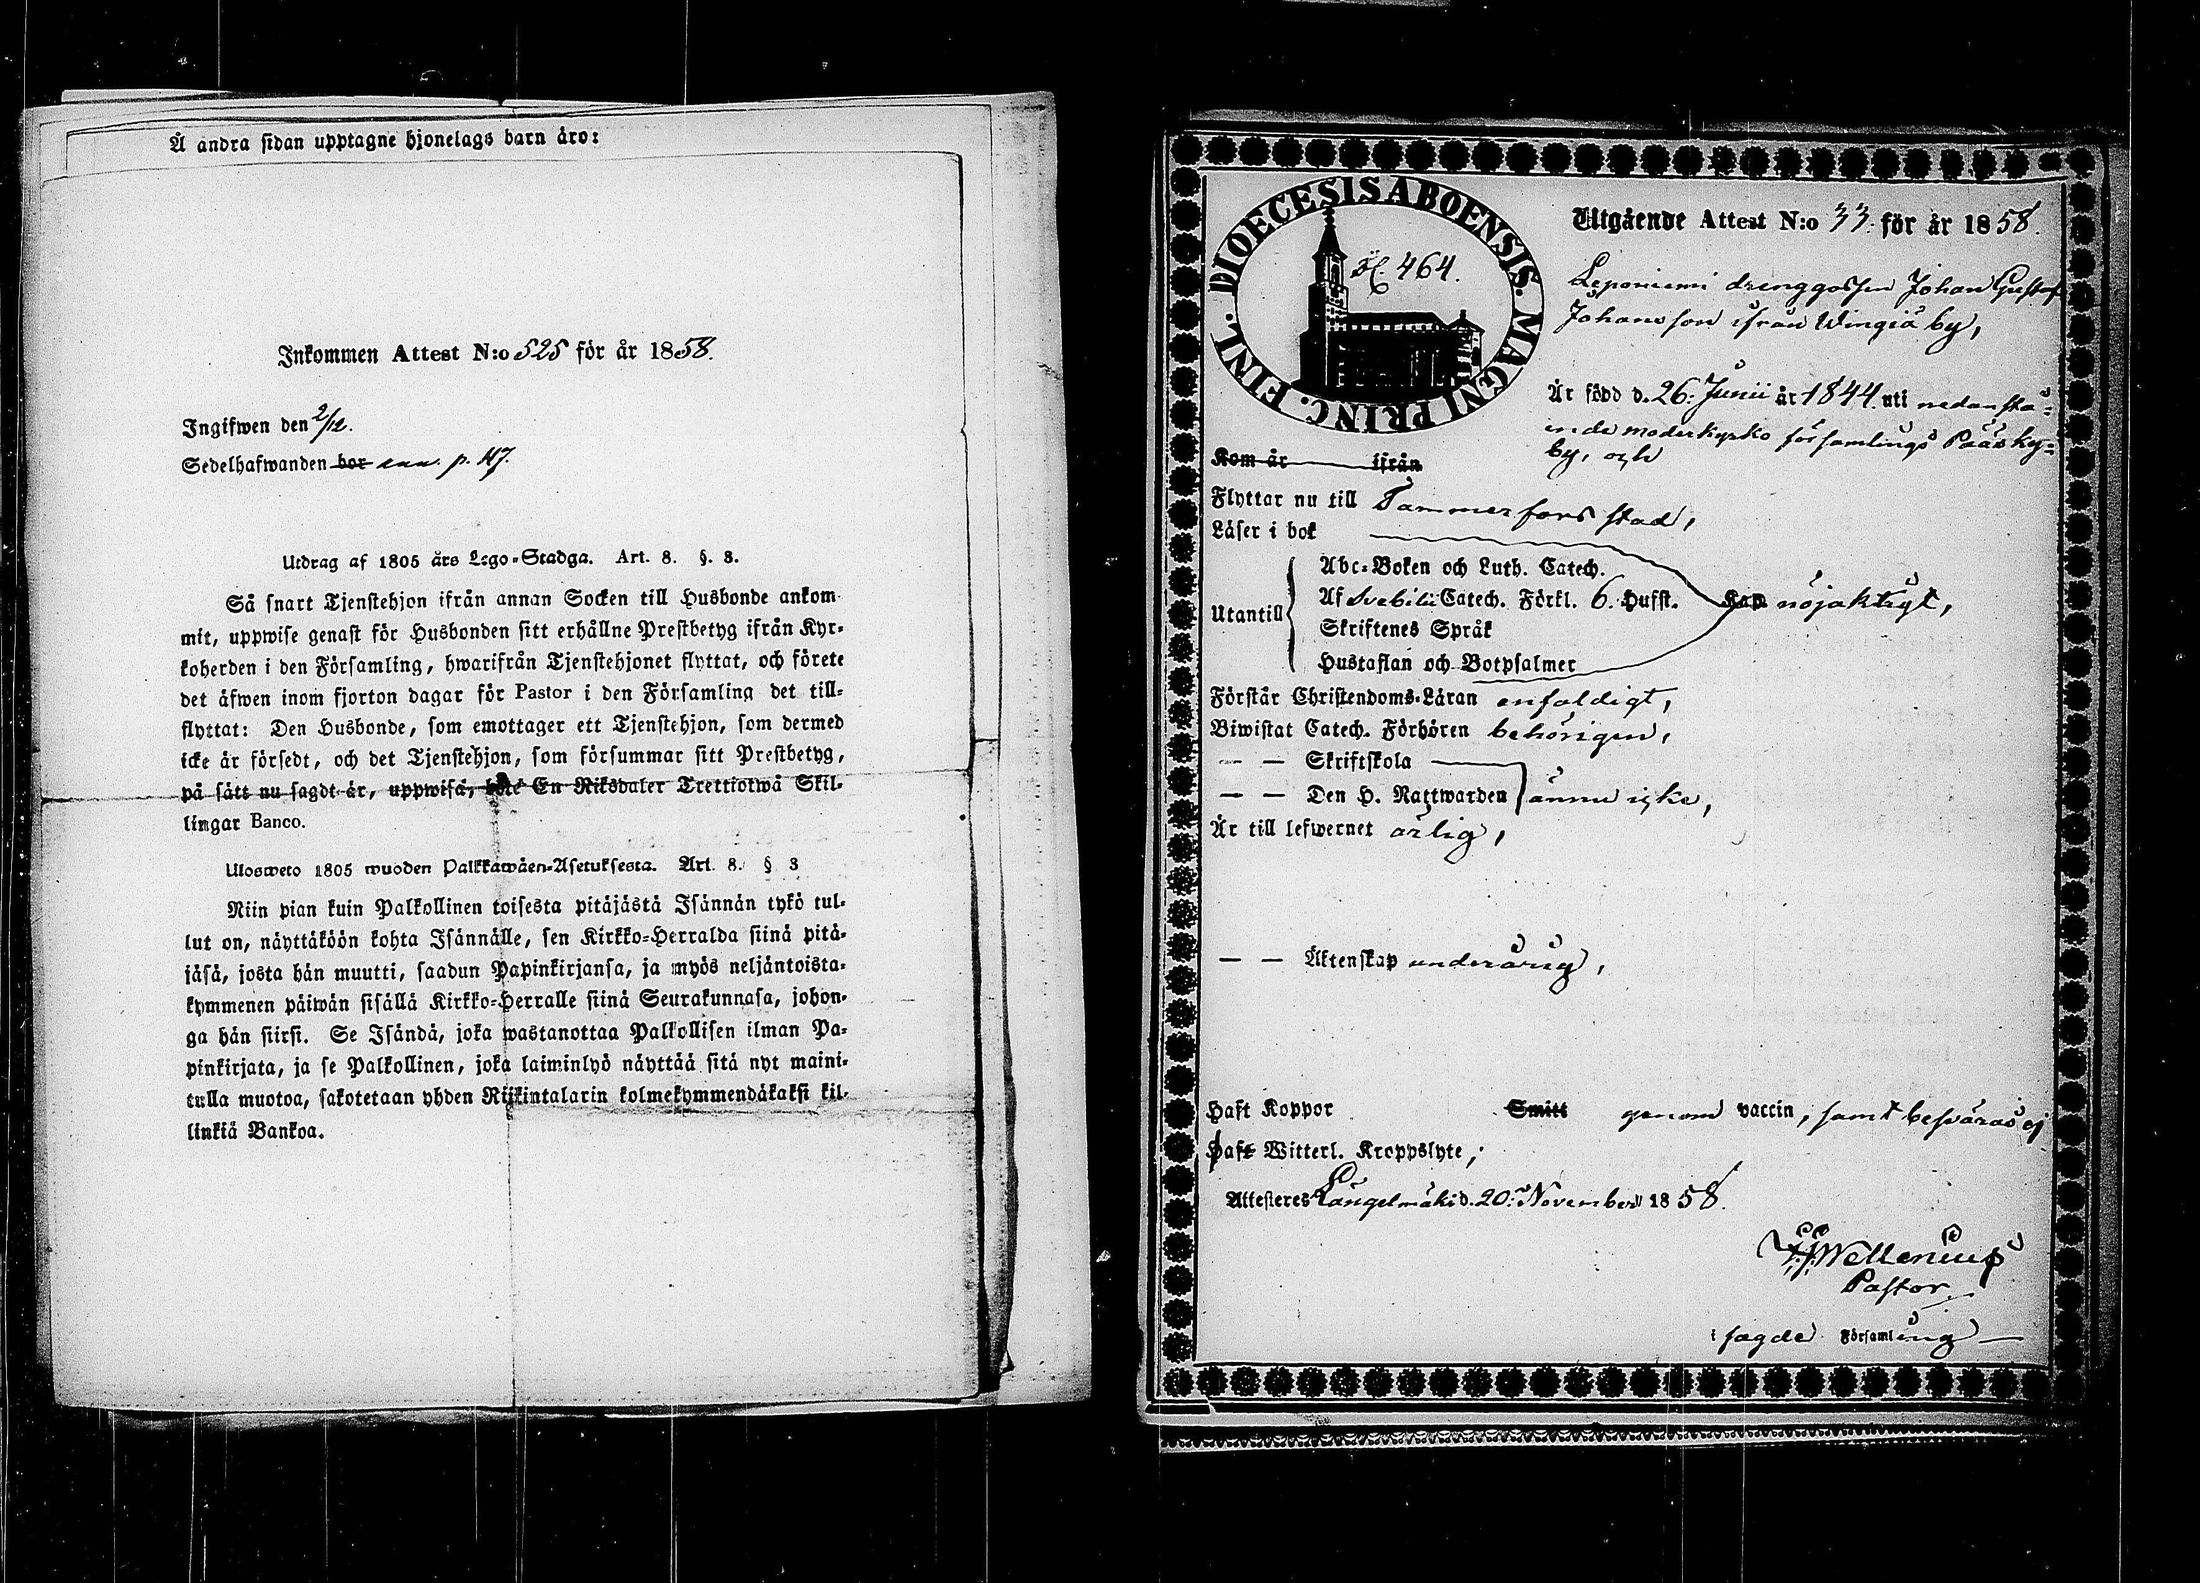 Å andra sidan upptagne hjonelags barn äro:
Inkommen Attest N:o 525 för år 1858.
Ingifwen den 2/12.
Sedelhafwanden bor ann. p. 117.
Utdrag af 1805 års Lego-Stadga. Art. 8. §. 3.
Så snart Tjenstehjon ifrån annan Socken till Husbonde ankom-
mit, uppwise genast för Husbonden sitt erhållne Prestbetyg ifrån Kyr-
koherden i den Församling, hwarifrån Tjenstehjonet flyttat, och förete
det äfwen inom fjorton dagar för Pastor i den Församling det till-
flyttat: Den Husbonde, som emottager ett Tjenstehjon, som dermed
icke är försedt, och det Tjenstehjon, som försummar sitt Prestbetyg,
på sätt nu sagdt är, uppwisa, böte En Riksdaler Trettiotwå Skil-
lingar Banco.
Ulosweto 1805 wuoden Palkkawäen-Asetuksesta. Art. 8. § 3
Niin pian kuin Palkollinen toisesta pitäjästä Isännän tykö tul-
lut on, näyttäköön kohta Isännälle, sen Kirkko-Herralda siinä pitä-
jäsä, josta hän muutti, saadun Papinkirjansa, ja myös neljäntoista-
kymmenen päiwän sisällä Kirkko-Herralle siinä Seurakunnasa, johon-
ga hän siirsi. Se Isändä, joka wastanottaa Palkollisen ilman Pa-
pinkirjata, ja se Palkollinen, joka laiminlyö näyttää sitä nyt maini-
tulla muotoa, sakotetaan yhden Riikintalarin kolmekymmendäkaksi kil-
linkiä Bankoa.
DIOECESIS ABOENSIS. MAGNI PRINC. FINL.
464.
Utgående Attest N:o 33. för år 1858.
Leponiemi drenggossen Johan Gustaf
Johansson ifrån Wingiä by,
Är född d. 26. Junii år 1844. uti nedanstå-
ende moderkyrko församlings Pääsky-
by, och
Kom år ifrån
Flyttar nu till Tammerfors stad,
Läser i bok
Utantill
Abc-Boken och Luth. Catech.
Af Svebilii Catech. Förkl. 6. Hufst. Kap nöjaktigt,
Skriftenes Språk
Hustaflan och Botpsalmer
Förstår Christendoms-Läran enfaldigt,
Biwistat Catech. Förhören behörigen,
— — Skriftskola
— — Den H. Nattwarden ännu icke,
Är till lefwernet ärlig,
— — Äktenskap underårig,
Haft Koppor Smitt genom vaccin, samt besväras ej
Haft Witterl. Kroppslyte;
Attesteres Längelmäki d. 20. November 1858.
Wellenius
Pastor
i sagde Församling